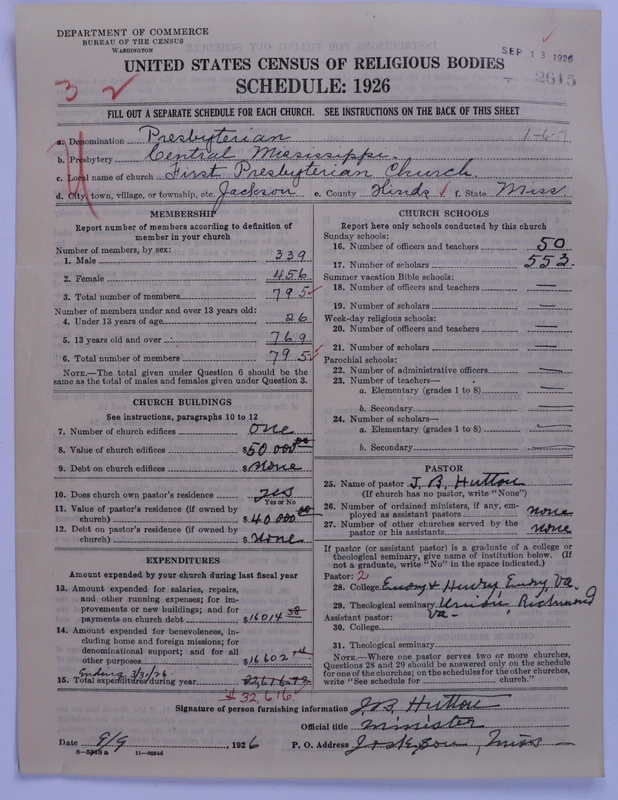 DEPARTMENT OF COMMERCE
BUREAU OF THE CENSUS
WASHINGTON
SEP 13 1926
2615
UNITED STATES CENSUS OF RELIGIOUS BODIES
SCHEDULE: 1926
3 2
FILL OUT A SEPARATE SCHEDULE FOR EACH CHURCH. SEE INSTRUCTIONS ON THE BACK OF THIS SHEET
a. Denomination Presbyterian
b. Presbytery Central Mississippi.
c. Local name of church First Presbyterian Church.
d. City, town, village, or township, etc. Jackson e. County Hinds f. State Miss
MEMBERSHIP
Report number of members according to definition of
member in your church
Number of members, by sex:
1. Male 339
2. Female 456
3. Total number of members 795
Number of members under and over 13 years old:
4. Under 13 years of age 26
5. 13 years old and over 769
6. Total number of members 795
NOTE.—The total given under Question 6 should be the
same as the total of males and females given under Question 3.
CHURCH BUILDINGS
See instructions, paragraphs 10 to 12
7. Number of church edifices One
8. Value of church edifices $50 000 00
9. Debt on church edifices $None
10. Does church own pastor's residence yes
Yes or No
11. Value of pastor's residence (if owned by
church) $40000 00
12. Debt on pastor's residence (if owned by
church) $None
EXPENDITURES
Amount expended by your church during last fiscal year
13. Amount expended for salaries, repairs,
and other running expenses; for im-
provements or new buildings; and for
payments on church debt $16014 38
14. Amount expended for benevolences, in-
cluding home and foreign missions; for
denominational support; and for all
other purposes $16602
Ending 3/31/26
15. Total expenditures during year
$32,616
CHURCH SCHOOLS
Report here only schools conducted by this church
Sunday schools:
16. Number of officers and teachers 50
17. Number of scholars 553
Summer vacation Bible schools:
18. Number of officers and teachers —
19. Number of scholars —
Week-day religious schools:
20. Number of officers and teachers —
21. Number of scholars —
Parochial schools:
22. Number of administrative officers —
23. Number of teachers—
a. Elementary (grades 1 to 8) —
b. Secondary —
24. Number of scholars—
a. Elementary (grades 1 to 8) —
b. Secondary —
PASTOR
25. Name of pastor J. B. Hutton
(If church has no pastor, write "None")
26. Number of ordained ministers, if any, em-
ployed as assistant pastors none
27. Number of other churches served by the
pastor or his assistants none
If pastor (or assistant pastor) is a graduate of a college or
theological seminary, give name of institution below. (If
not a graduate, write "No" in the space indicated.)
Pastor: 2
28. College Emory & Henry, Emory, Va.
29. Theological seminary Union, Richmond
Va-
Assistant pastor:
30. College
31. Theological seminary
NOTE.—Where one pastor serves two or more churches,
Questions 28 and 29 should be answered only on the schedule
for one of the churches; on the schedules for the other churches,
write "See schedule for church."
Signature of person furnishing information J. B. Hutton
Official title Minister
Date 9/9, 1926 P. O. Address Jackson, Miss